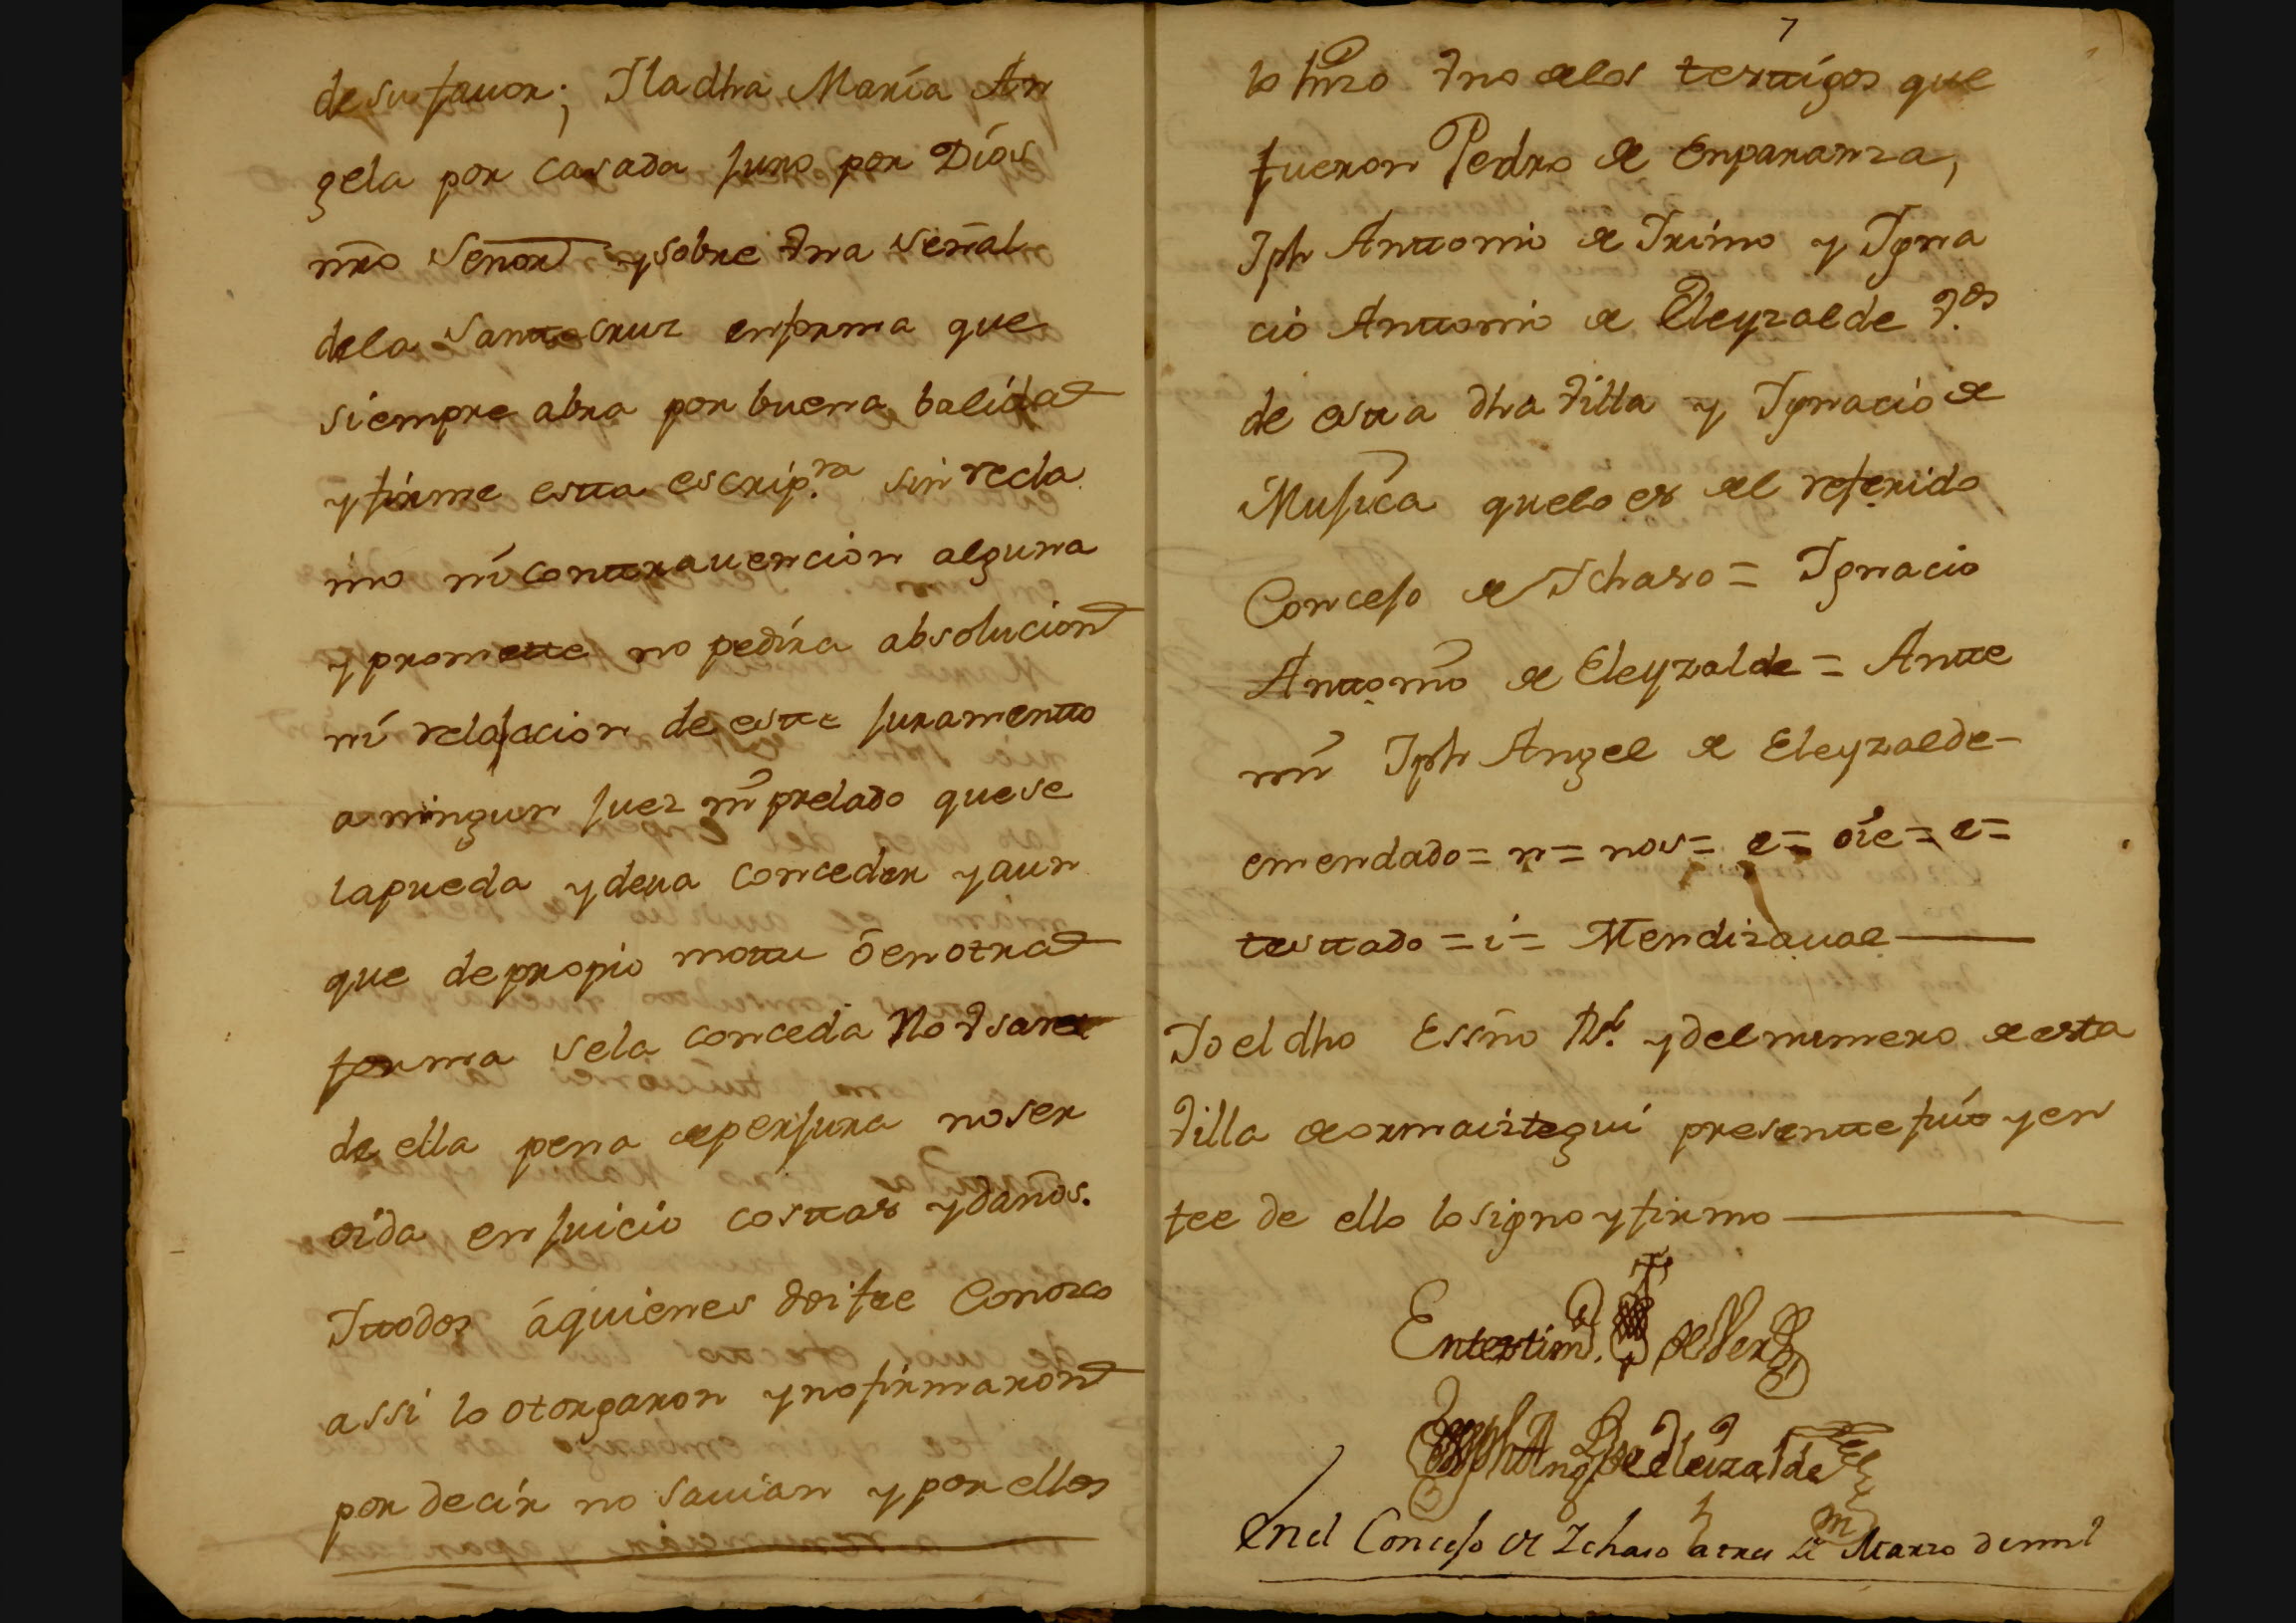 de su fauor; Y la dha María An
gela por casada juro por Díos
nro Senor y sobre vna señal
dela santta cruz en forma que
siempre abra por buena balida
y fírme estta escrip.ra sin recla
mo ni conttrauencion alguna
y promette no pedíra absolucion
ní relajacion de estte juramentto
a ningun juez ni prelado que se
la pueda y deua conceder y aun
que de propio mottu ó en otra
forma se la conceda No vsara
de ella pena de perjura no ser
oída en juicio costtas y daños.
Y ttodos á quienes doi fee Conozco
assi lo otorgaron y no fírmaron
por decír no sauian y por ellos
7
lo firmo vno de los testtígos que
fueron Pedro de Enparanza,
Jph Anttonio de Irimo y Igna
cio Anttonio de Eleyzalde v.os
de estta dha villa y Ignacio de
Mujica que lo es del referido
Concejo de Ichaso = Ignacio
Anttonio de Eleyzalde = Antte
mi Jph Angel de Eleyzalde –
emendado = n = nos = e = oíe = e =
testtado = i = Mendizaual
Yo el dho Essno Rl. y del numero de esta
villa de ormaiztegui presentte fuí y en
fee de ello lo signo y firmo
En testim.o de Verd
Joseph Angel de Eleizalde
En el Concejo de Ichaso a tres de Marzo de mil